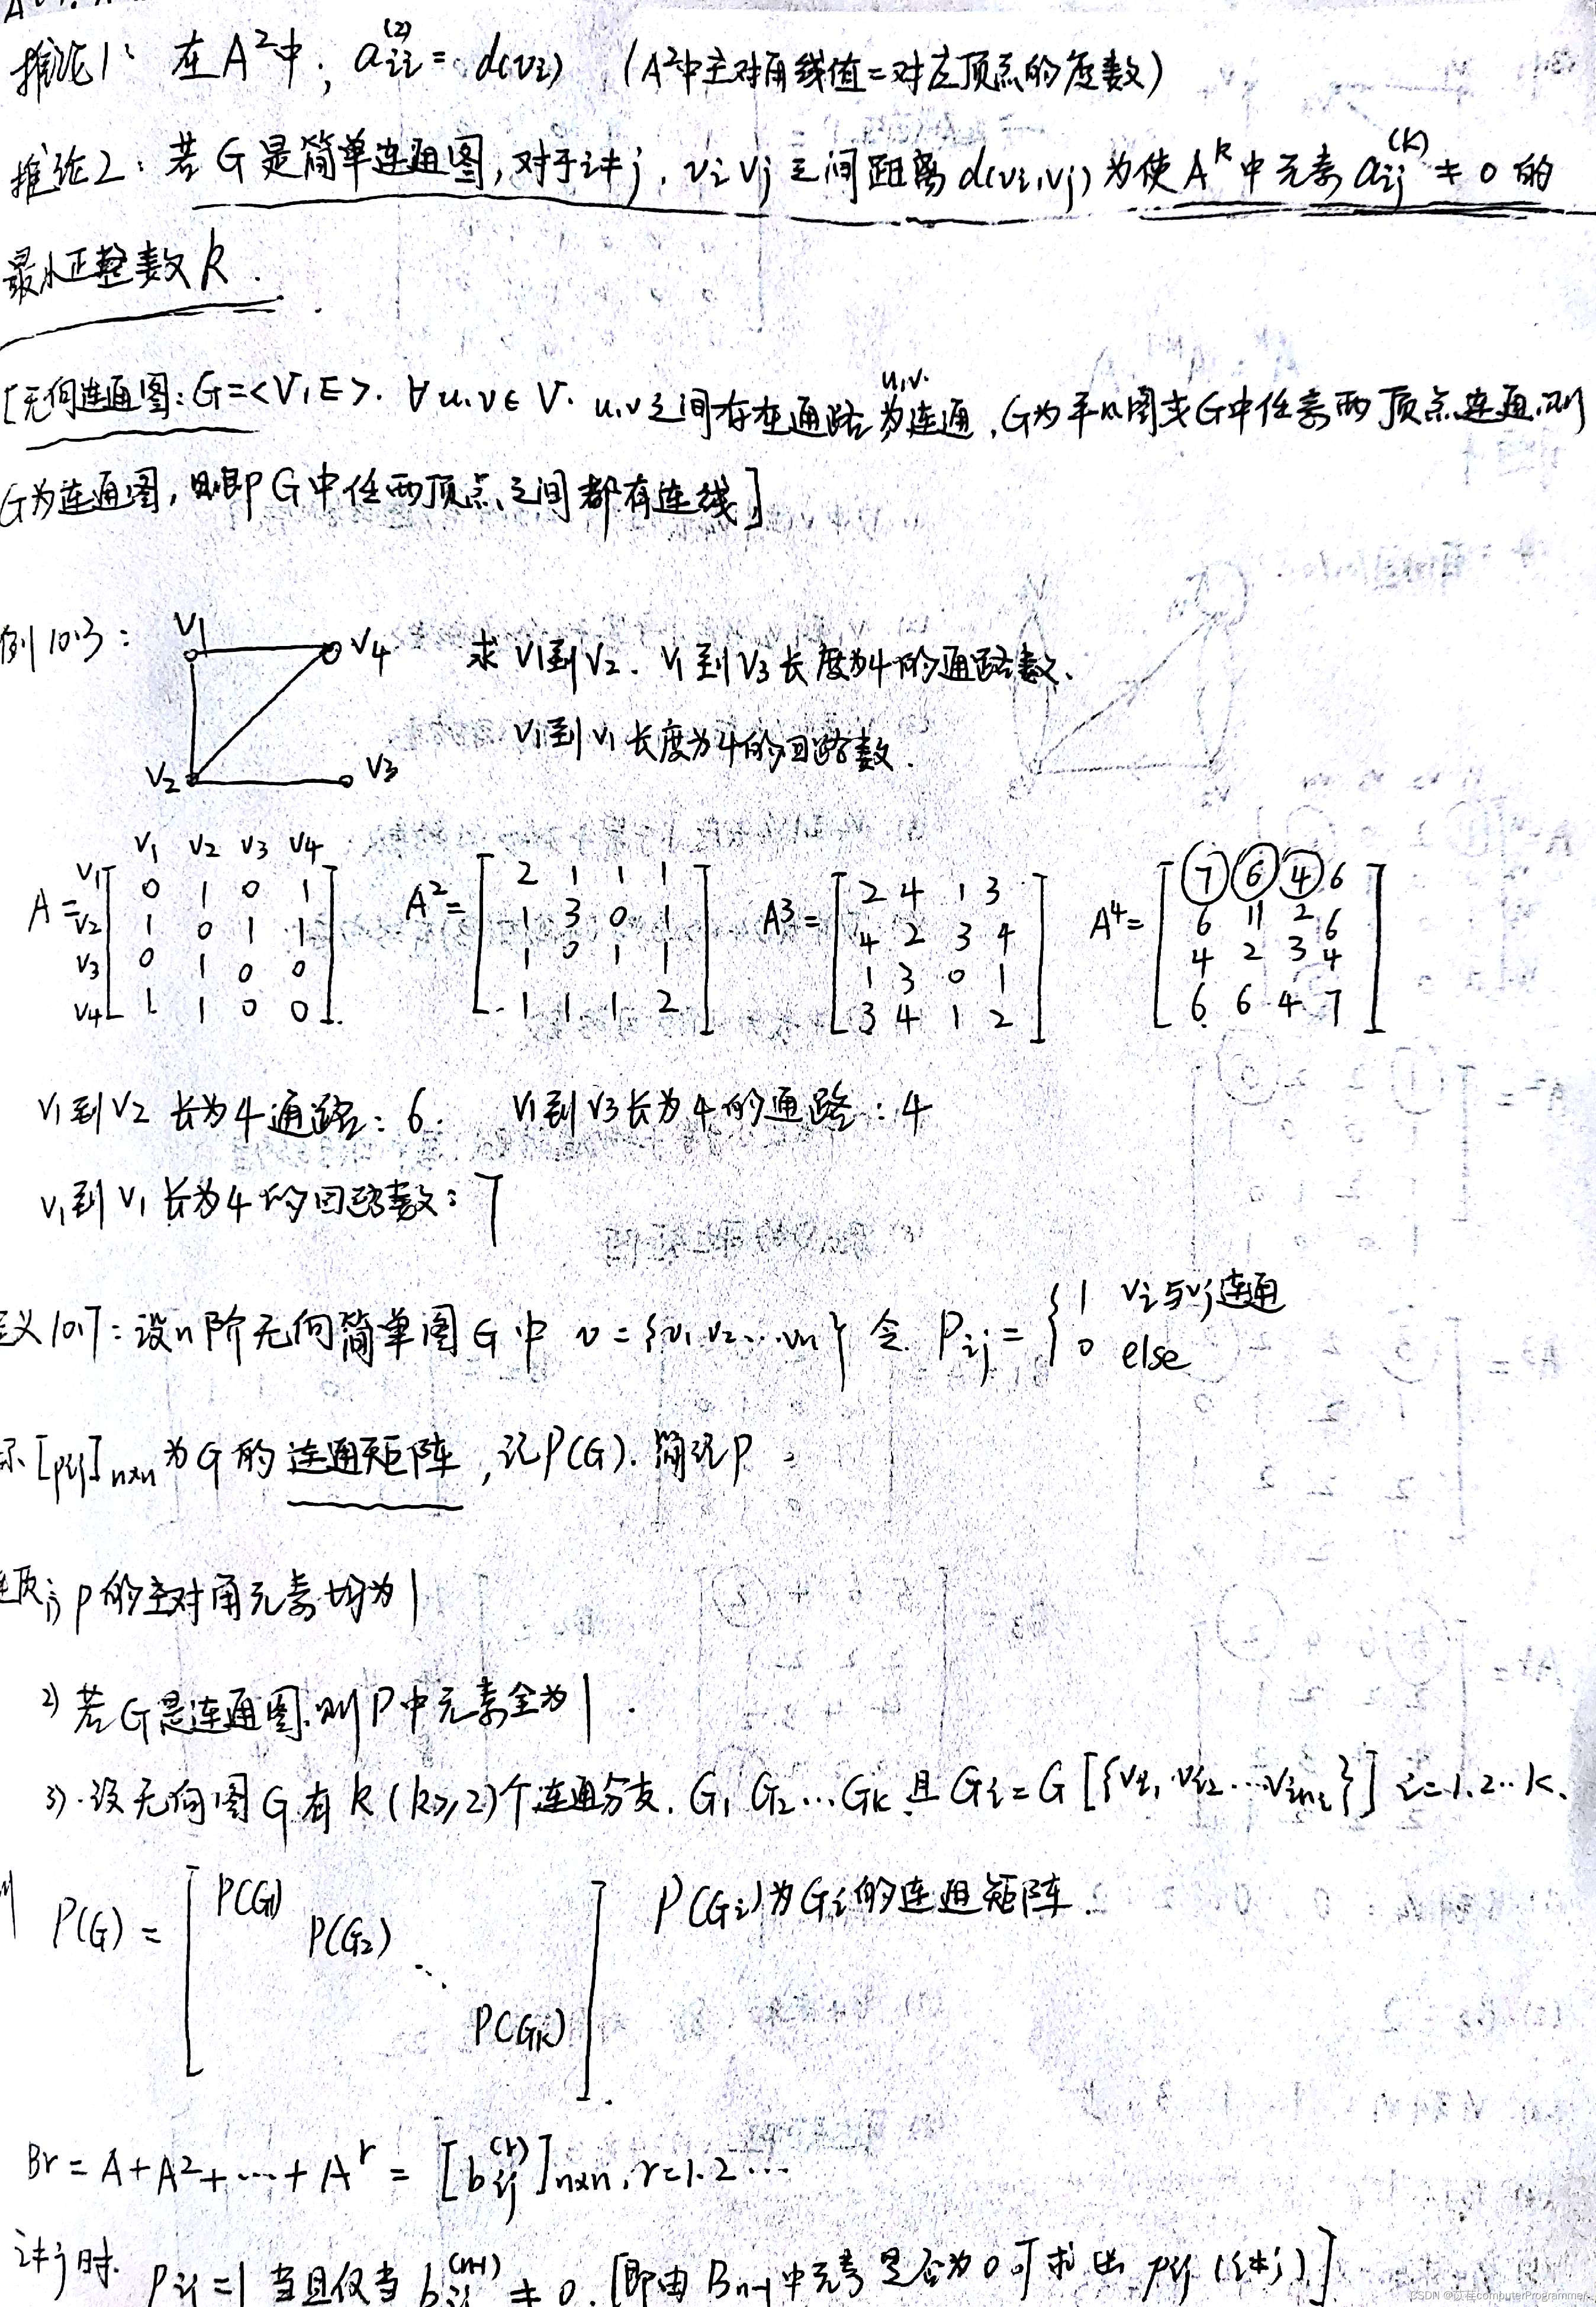 推论1: 在A²中, aᵢᵢ⁽²⁾ = d(vᵢ) (A²中主对角线值=对应顶点的度数)
推论2: 若G是简单连通图, 对于i≠j, vᵢ vⱼ之间距离d(vᵢ,vⱼ)为使Aᵏ中元素aᵢⱼ⁽ᵏ⁾≠0的
最小正整数k.
[无向连通图: G=<V,E>. ∀u,v∈V. u,v之间存在通路 u,v.为连通, G为平凡图或G中任意两顶点连通,则
G为连通图, 即G中任两顶点之间都有连线]
例10.3:
v1 v4
v2 v3
求v1到v2. v1到v3长度为4的通路数.
v1到v1长度为4的回路数.
v1 v2 v3 v4
A =
v1 0 1 0 1
v2 1 0 1 1
v3 0 1 0 0
v4 1 1 0 0
A² =
2 1 1 1
1 3 0 1
1 0 1 1
1 1 1 2
A³ =
2 4 1 3
4 2 3 4
1 3 0 1
3 4 1 2
A⁴ =
7 6 4 6
6 11 2 6
4 2 3 4
6 6 4 7
v1到v2长为4通路: 6. v1到v3长为4的通路: 4
v1到v1长为4的回路数: 7
定义10.7: 设n阶无向简单图G中 v={v1,v2...vn} 令 Pij = { 1 vi与vj连通
0 else
[pij]n×n为G的连通矩阵, 记P(G). 简记P
1) P的主对角元素均为1
2) 若G是连通图,则P中元素全为1.
3). 设无向图G有k(k≥2)个连通分支. G1 G2...Gk 且 Gi=G[{vi1, vi2...vini}] i=1.2..k.
则 P(G) = [P(G1)
P(G2)
⋱
P(Gk)]
P(Gi)为Gi的连通矩阵.
Br = A+A²+...+Aʳ = [bij⁽ʳ⁾]n×n, r=1.2...
i≠j时. Pij=1 当且仅当 bij⁽ⁿ⁻¹⁾≠0. [即由Bn-1中元素是否为0可求出pij (i≠j)]